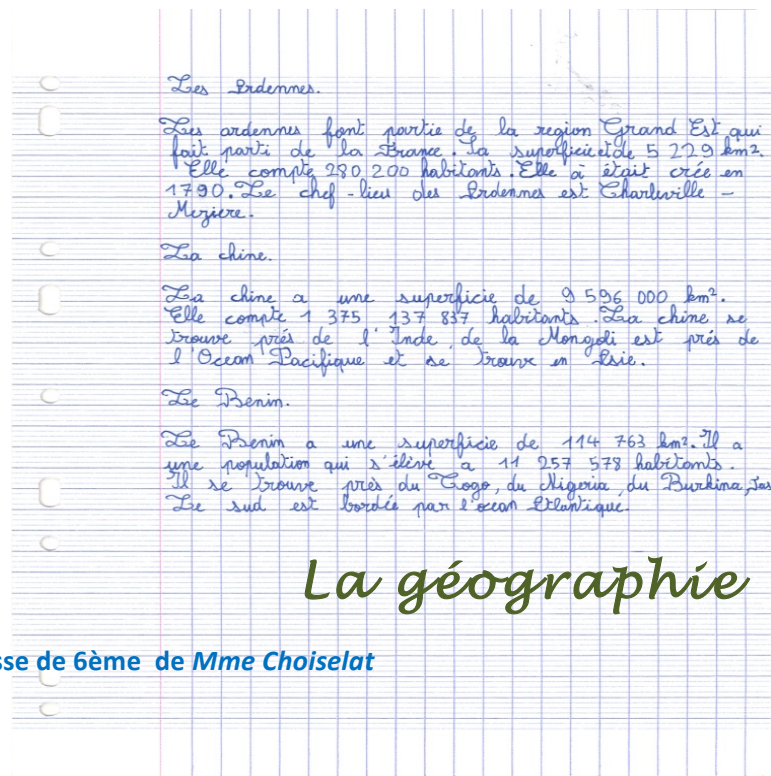 Les Ardennes.
Les ardennes font partie de la region Grand Est qui
fait parti de la France. Sa superficie et de 5 229 km².
Elle compte 280 200 habitants. Elle à était crée en
1790. Le chef-lieu des Ardennes est Charleville -
Meziere.
La chine.
La chine a une superficie de 9 596 000 km².
Elle compte 1 375 137 837 habitants. La chine se
trouve prés de l'Inde, de la Mongoli est prés de
l'Ocean Pacifique et se trouve en Asie.
Le Benin.
Le Benin a une superficie de 114 763 km². Il a
une population qui s'élève a 11 257 578 habitants.
Il se trouve près du Togo, du Nigeria, du Burkina,
Le sud est bordée par l'ocean Atlantique.
La géographie
sse de 6ème de Mme Choiselat